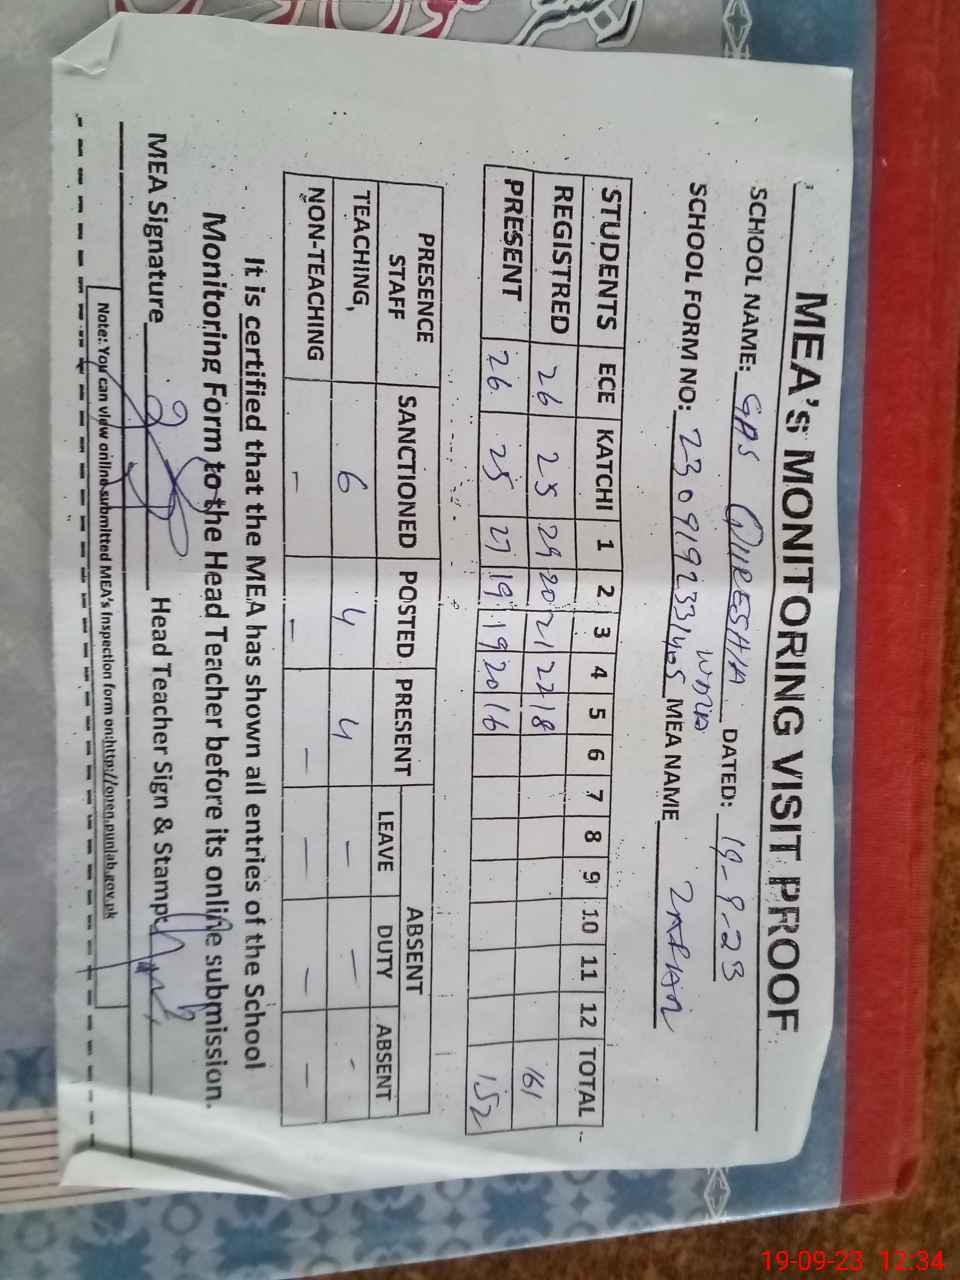 MEA's MONITORING VISIT PROOF
SCHOOL NAME: GPS QUIRESHIA DATED: 19-9-23
SCHOOL FORM NO: 2309192331405 MEA NAME
STUDENTS ECE KATCHI 1 2 3 4 5 6 7 8 9 10 11 12 TOTAL
REGISTRED 26 25 29 20 21 22 18 161
PRESENT 26 25 27 19 19 20 16 152
PRESENCE STAFF SANCTIONED POSTED PRESENT ABSENT
LEAVE DUTY ABSENT
TEACHING, 6 4 4 - - -
NON-TEACHING - - - - - -
It is certified that the MEA has shown all entries of the School
Monitoring Form to the Head Teacher before its online submission.
MEA Signature Head Teacher Sign & Stamp
Note: You can view online submitted MEA's Inspection form on:http://open.punjab.gov.pk
19-09-23 12:34